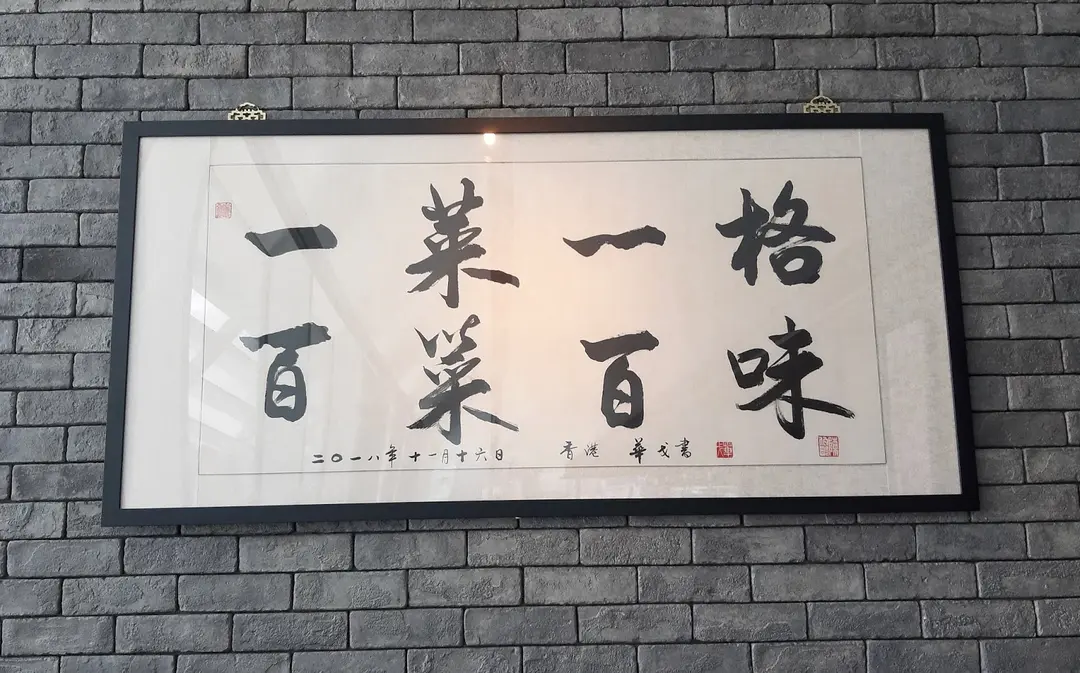 一菜一格
百菜百味
二〇一八年十一月十六日 香港 華戈書